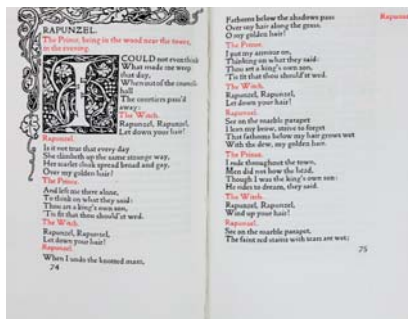 RAPUNZEL.
The Prince, being in the wood near the tower,
in the evening.
I COULD not even think
What made me weep
that day,
When out of the council-
hall
The courtiers pass'd
away;
The Witch.
Rapunzel, Rapunzel,
Let down your hair!
Rapunzel.
Is it not true that every day
She climbeth up the same strange way,
Her scarlet cloak spread broad and gay,
Over my golden hair?
The Prince.
And left me there alone,
To think on what they said:
Thou art a king's own son,
'Tis fit that thou should'st wed.
The Witch.
Rapunzel, Rapunzel,
Let down your hair!
Rapunzel.
When I undo the knotted mass,
74
Fathoms below the shadows pass
Over my hair along the grass,
O my golden hair!
The Prince.
I put my armour on,
Thinking on what they said:
Thou art a king's own son,
'Tis fit that thou should'st wed.
The Witch.
Rapunzel, Rapunzel,
Let down your hair!
Rapunzel.
See on the marble parapet
I lean my brow, strive to forget
That fathoms below my hair grows wet
With the dew, my golden hair.
The Prince.
I rode throughout the town,
Men did not bow the head,
Though I was the king's own son:
He rides to dream, they said.
The Witch.
Rapunzel, Rapunzel,
Wind up your hair!
Rapunzel.
See on the marble parapet,
The faint red stains with tears are wet;
75
Rapunzel